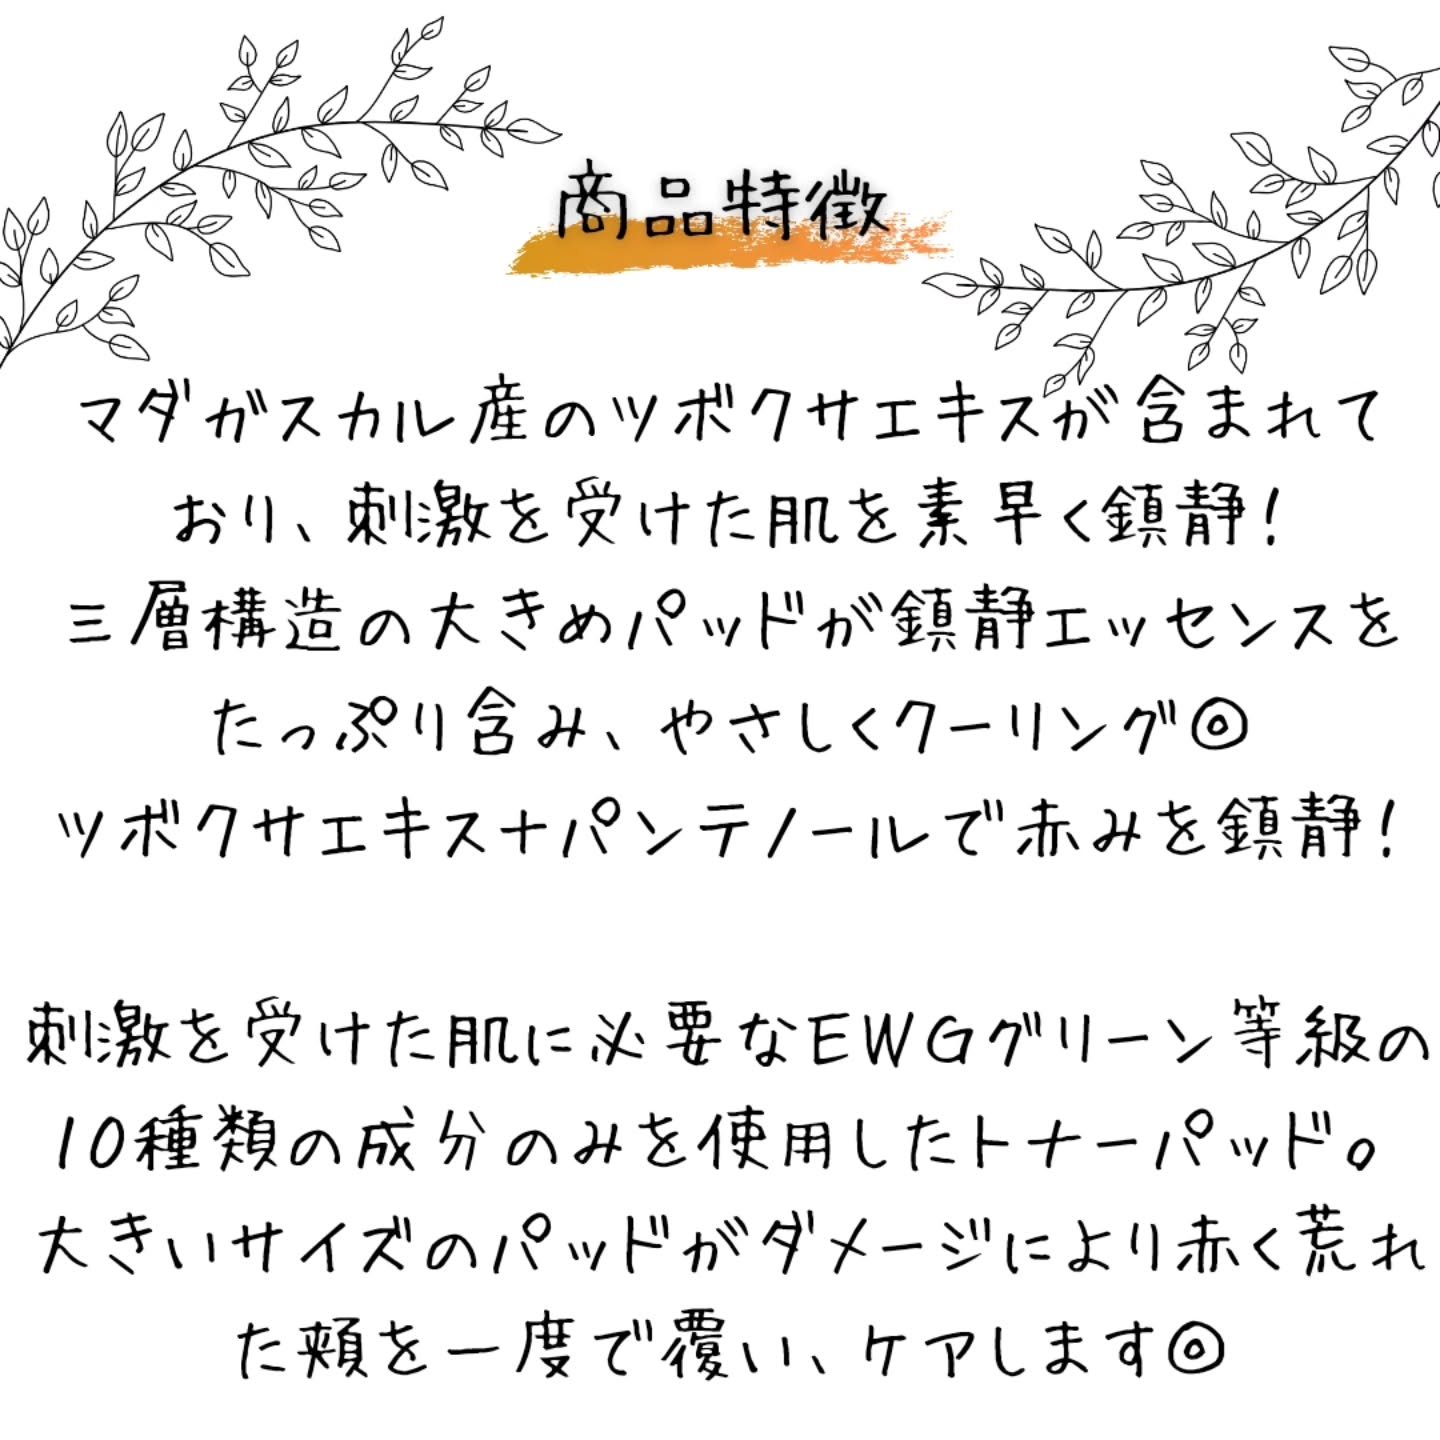 商品特徴
マダガスカル産のツボクサエキスが含まれて
おり、刺激を受けた肌を素早く鎮静!
三層構造の大きめパッドが鎮静エッセンスを
たっぷり含み、やさしくクーリング◎
ツボクサエキス+パンテノールで赤みを鎮静!
刺激を受けた肌に必要なEWGグリーン等級の
10種類の成分のみを使用したトナーパッド。
大きいサイズのパッドがダメージにより赤く荒れ
た頬を一度で覆い、ケアします◎